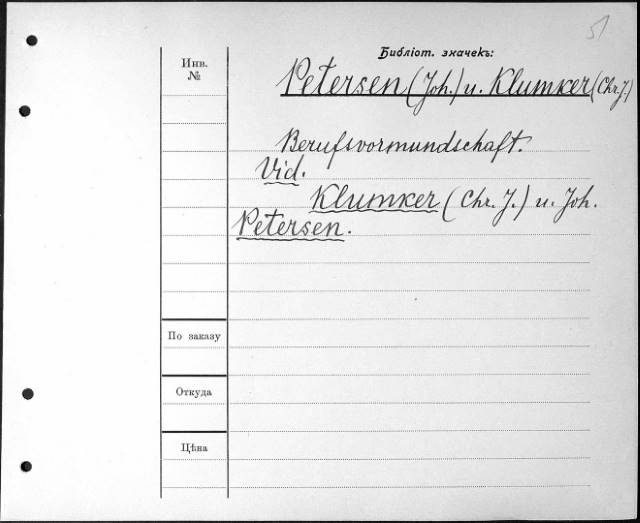 51
Библіот. значекъ:
Инв.
№
Petersen (Joh.) u. Klumker (Chr. J.)
Berufsvormundschaft.
Vid.
Klumker (Chr. J.) u. Joh.
Petersen.
По заказу
Откуда
Цѣна